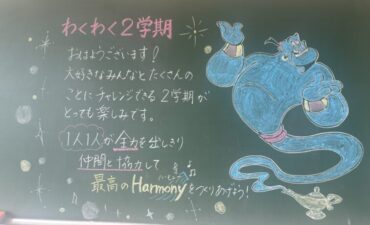 わくわく2学期
おはようございます！
大好きなみんなとたくさんの
ことにチャレンジできる2学期が
とっても楽しみです。
1人1人が全力を出しきり
仲間と協力して
ハーモニー
最高のHarmonyをつくりあげよう！